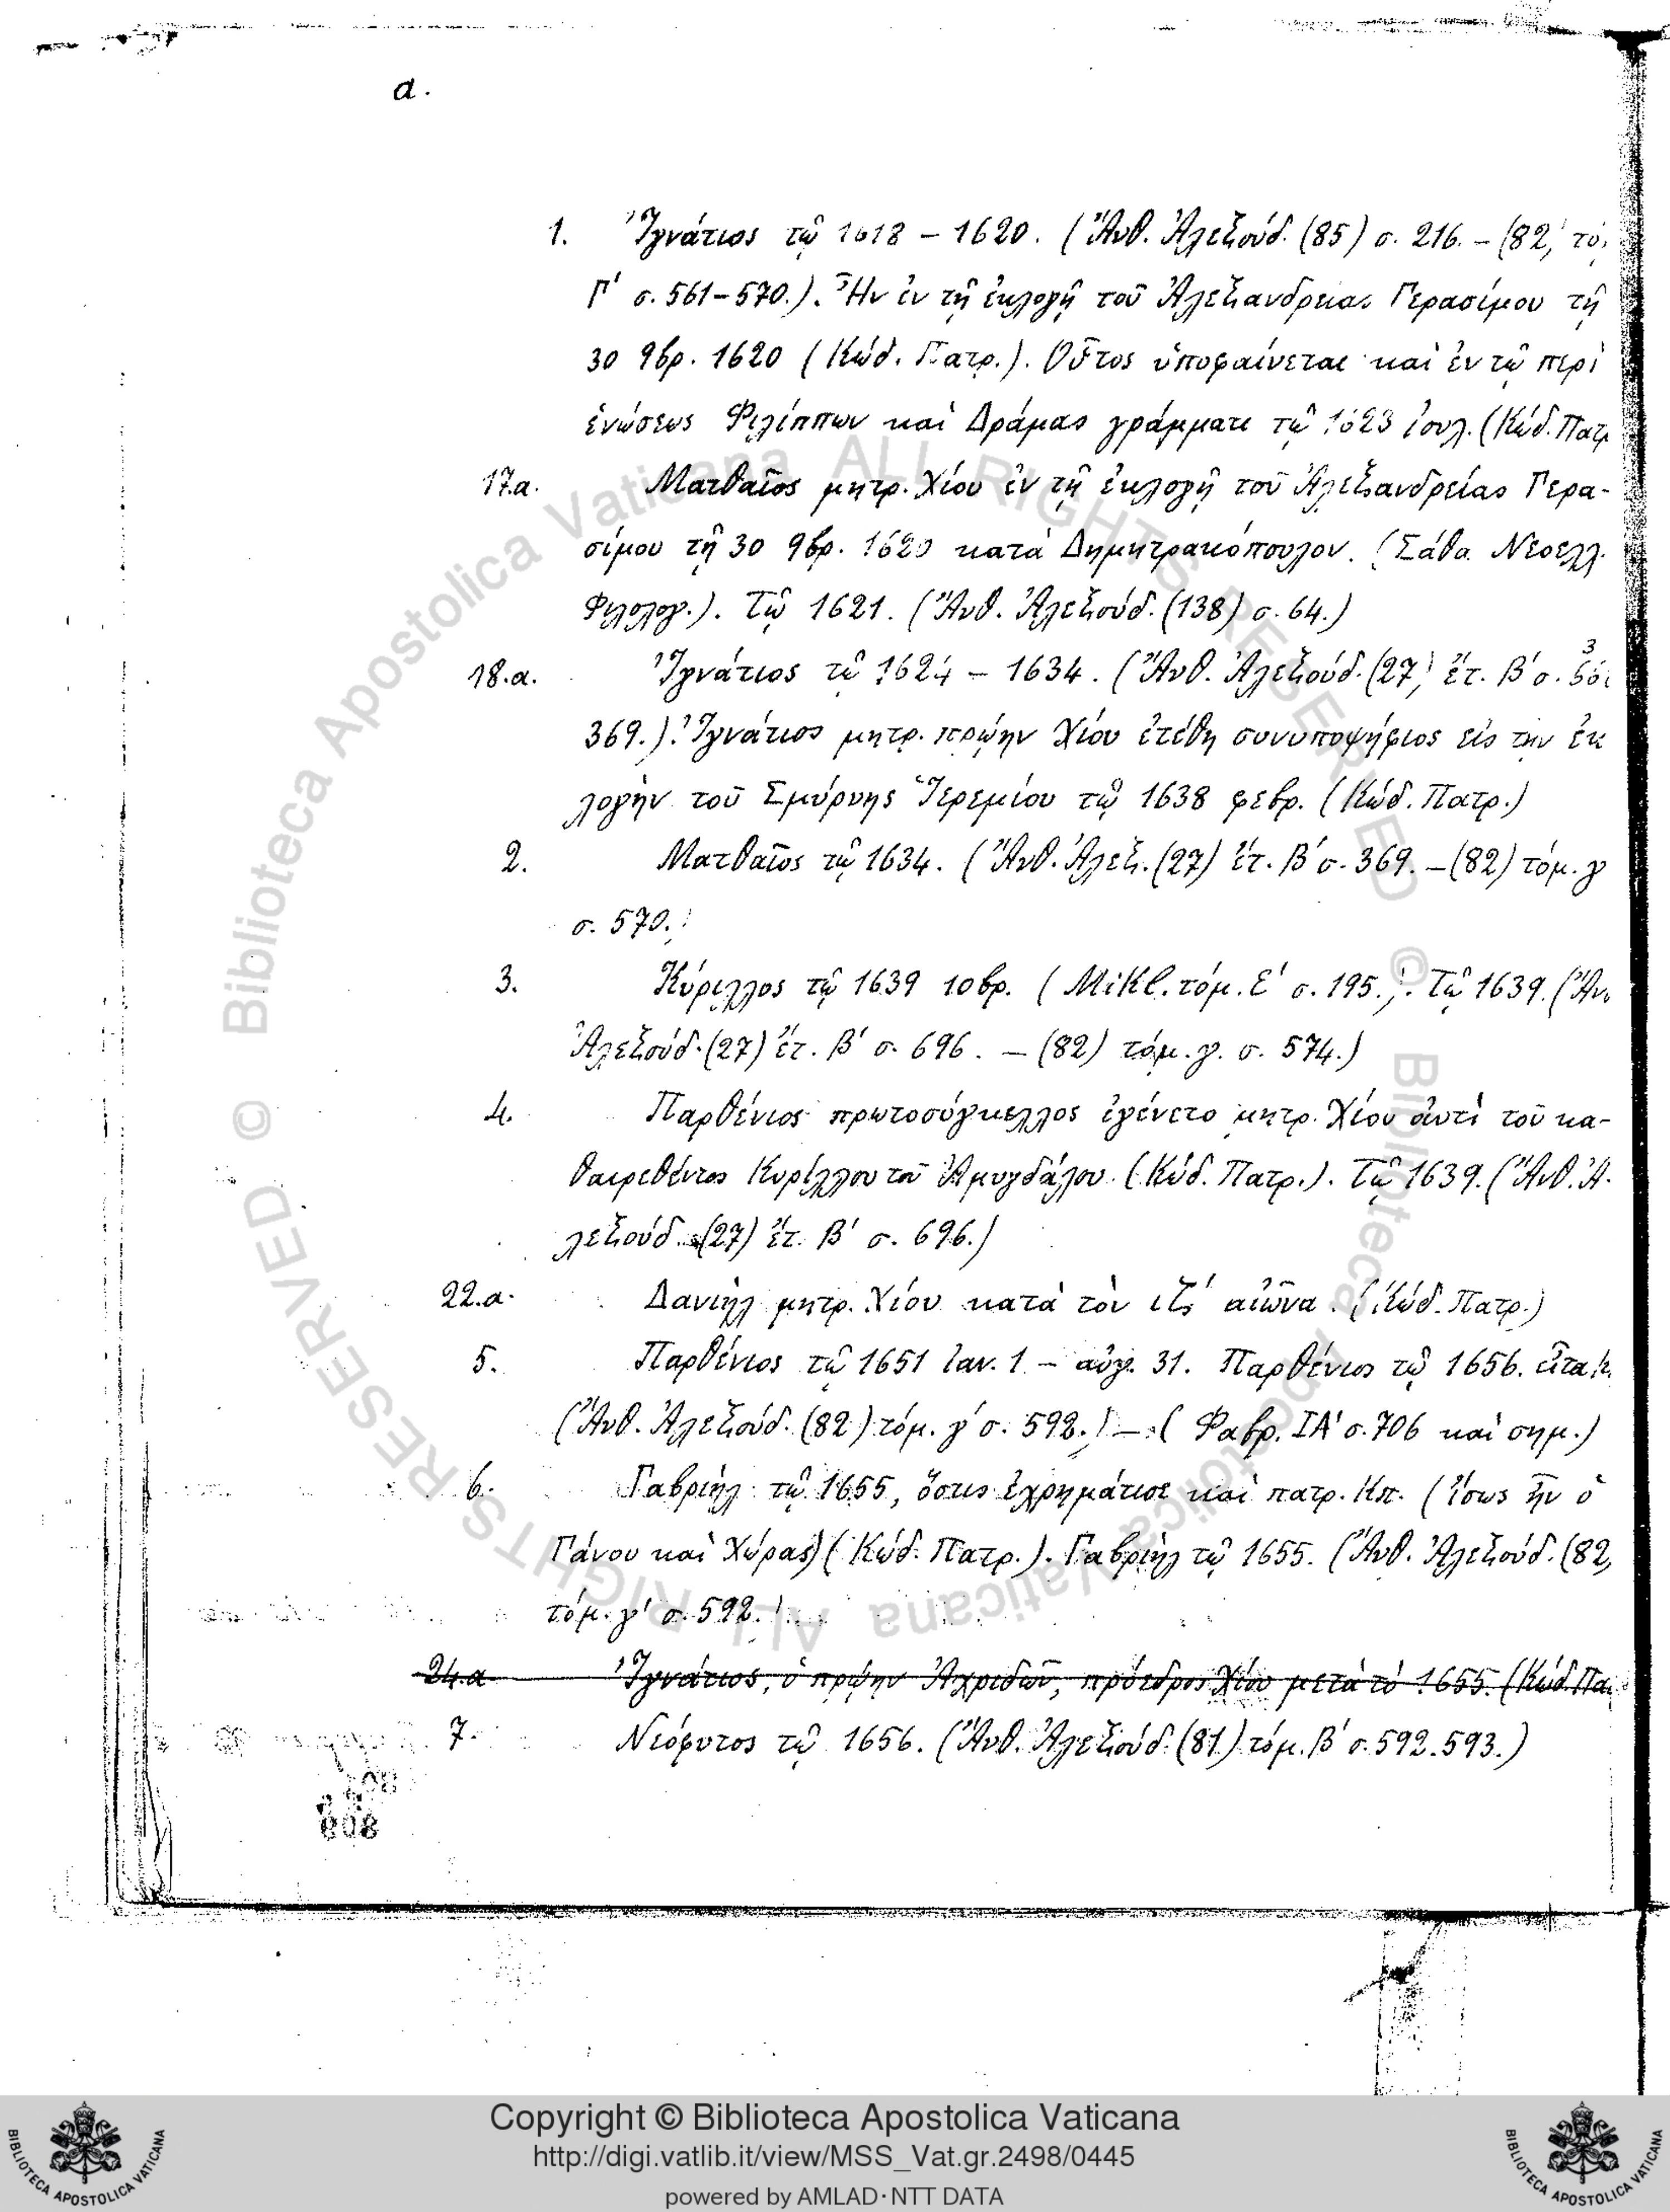 a.
1. Ἰγνάτιος τῷ 1618 – 1620. (Ἀνθ. Ἀλεξούδ. (85) σ. 216. – (82) τό
Γ' σ. 561–570.). Ἦν ἐν τῇ ἐκλογῇ τοῦ Ἀλεξανδρείας Γερασίμου τῇ
30 9βρ. 1620 (Κώδ. Πατρ.). Οὗτος ὑποφαίνεται καὶ ἐν τῷ περὶ
ἑνώσεως Φιλίππων καὶ Δράμας γράμματι τῷ 1623 ἰουλ. (Κώδ. Πατρ
17.a. Ματθαῖος μητρ. Χίου ἐν τῇ ἐκλογῇ τοῦ Ἀλεξανδρείας Γερα-
σίμου τῇ 30 9βρ. 1620 κατὰ Δημητρακόπουλον. (Σάθα Νεοελλ.
Φιλολογ.). Τῷ 1621. (Ἀνθ. Ἀλεξούδ. (138) σ. 64.)
18.a. Ἰγνάτιος τῷ 1624 – 1634. (Ἀνθ. Ἀλεξούδ. (27) ἔτ. Β' σ.
369.). Ἰγνάτιος μητρ. πρώην Χίου ἐτέθη συνυποψήφιος εἰς τὴν ἐκ
λογὴν τοῦ Σμύρνης Ἱερεμίου τῷ 1638 φεβρ. (Κώδ. Πατρ.)
2. Ματθαῖος τῷ 1634. (Ἀνθ. Ἀλεξ. (27) ἔτ. Β' σ. 369. – (82) τόμ. γ
σ. 570.)
3. Κύριλλος τῷ 1639 10βρ. (Mikl. τόμ. Ε' σ. 195.). Τῷ 1639. (Ἀν
Ἀλεξούδ. (27) ἔτ. Β' σ. 696. – (82) τόμ. γ. σ. 574.)
4. Παρθένιος πρωτοσύγκελλος ἐγένετο μητρ. Χίου ἀντὶ τοῦ κα-
θαιρεθέντος Κυρίλλου τοῦ Ἀμυγδάλου. (Κώδ. Πατρ.). Τῷ 1639. (Ἀνθ. Ἀ-
λεξούδ. (27) ἔτ. Β' σ. 696.)
22.a. Δανιὴλ μητρ. Χίου κατὰ τὸν ιζ' αἰῶνα. (Κώδ. Πατρ.)
5. Παρθένιος τῷ 1651 ἰαν. 1 – αὐγ. 31. Παρθένιος τῷ 1656. εἶτα Κ
(Ἀνθ. Ἀλεξούδ. (82) τόμ. γ' σ. 592.) – (Φαβρ. ΙΑ' σ. 706 καὶ σημ.)
6. Γαβριὴλ τῷ 1655, ὅστις ἐχρημάτισε καὶ πατρ. Κπ. (ἴσως ἦν ὁ
Γάνου καὶ Χώρας) (Κώδ. Πατρ.). Γαβριὴλ τῷ 1655. (Ἀνθ. Ἀλεξούδ. (82,
τόμ. γ' σ. 592.)
24.a Ἰγνάτιος, ὁ πρώην Ἀχριδῶν, πρόεδρος Χίου μετὰ τὸ 1655. (Κώδ. Πα
7. Νεόφυτος τῷ 1656. (Ἀνθ. Ἀλεξούδ. (81) τόμ. Β' σ. 592. 593.)
808
Copyright © Biblioteca Apostolica Vaticana
http://digi.vatlib.it/view/MSS_Vat.gr.2498/0445
powered by AMLAD·NTT DATA
BIBLIOTECA APOSTOLICA VATICANA
BIBLIOTECA APOSTOLICA VATICANA
© Biblioteca Apostolica Vaticana ALL RIGHTS RESERVED
© Biblioteca Apostolica Vaticana ALL RIGHTS RESERVED